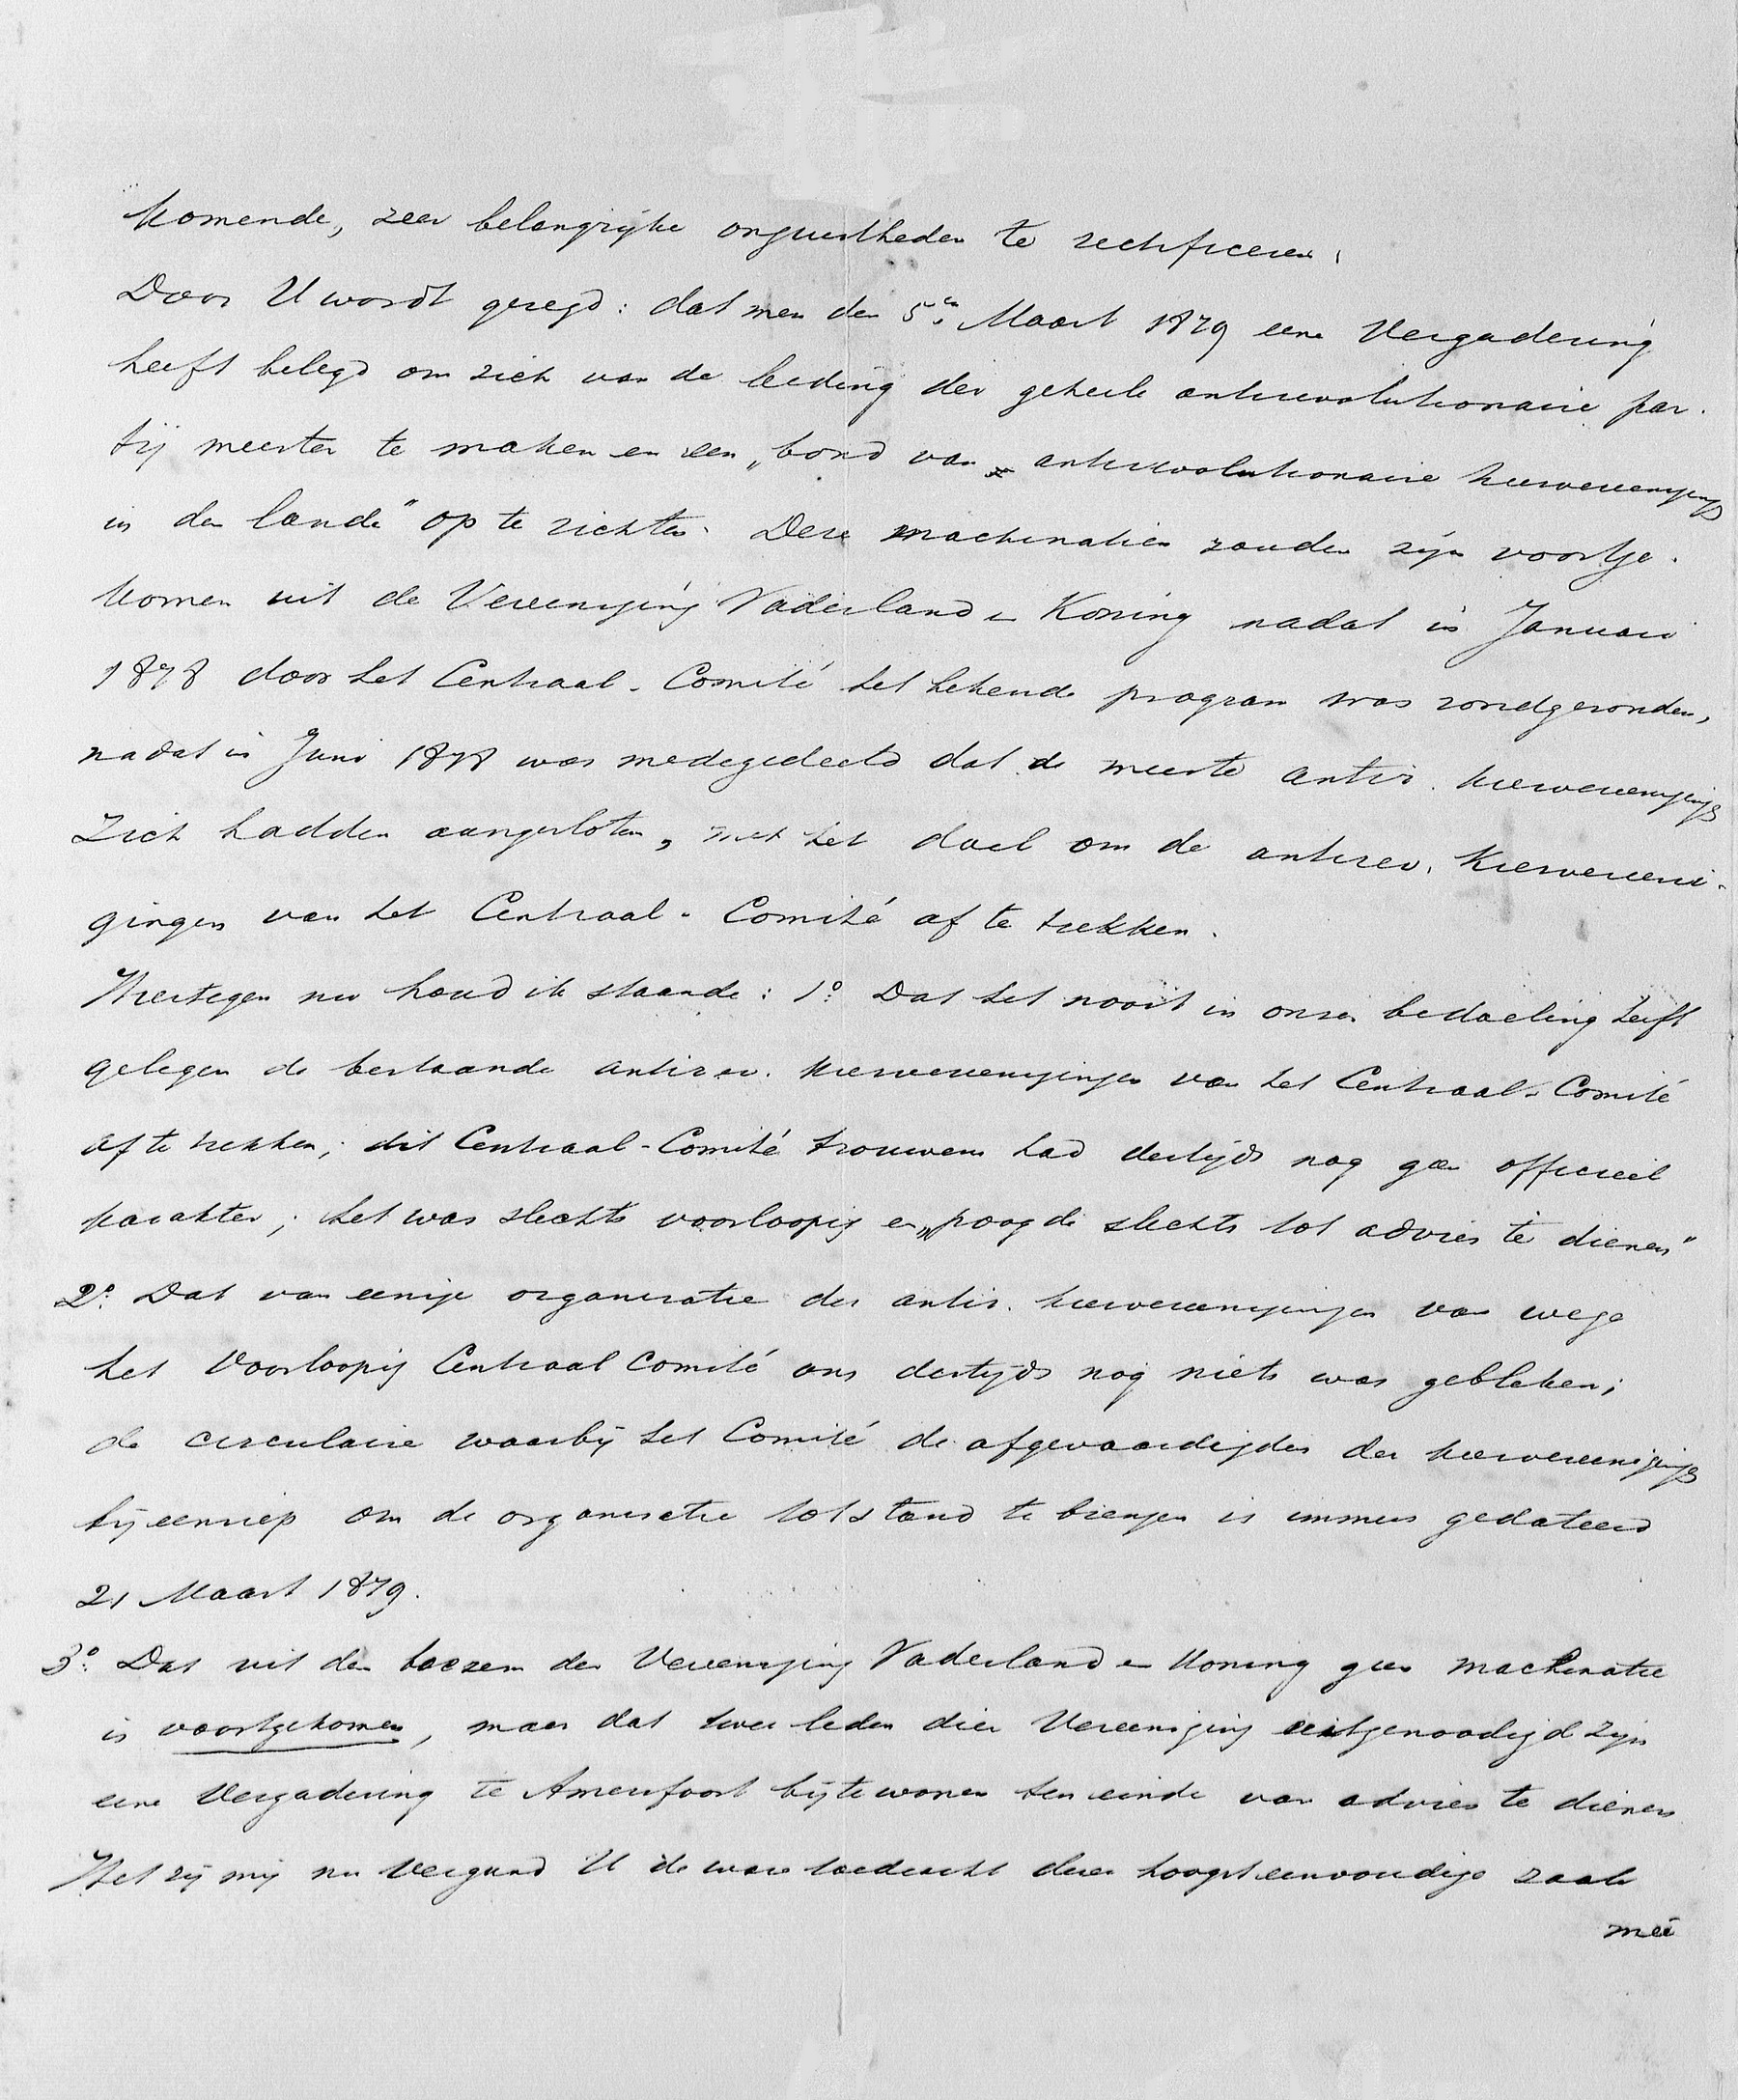 komende, zeer belangrijke onjuistheden te rectificeren.
Door U wordt gezegd: dat men den 5en Maart 1879 eene Vergadering
heeft belegd om zich van de leiding der geheele antirevolutionaire par-
tij meester te maken en een „bond van antirevolutionaire kiesvereenigings
in den lande" op te richten. Deze machinatien zouden zijn voortge-
komen uit de Vereeniging Vaderland en Koning nadat in Januari
1878 door het Centraal-Comité het bekende program was rondgezonden,
nadat in Juni 1878 was medegedeeld dat de meeste antir. kiesvereenigings
zich hadden aangesloten, met het doel om de antirev. Kiesvereeni-
gingen van het Centraal-Comité af te trekken.
Hiertegen nu houd ik staande: 1o. Dat het nooit in onze bedoeling heeft
gelegen de bestaande antirev. kiesvereenigingen van het Centraal-Comité
af te trekken; dit Centraal-Comité trouwens had destijds nog geen officieel
karakter; het was slechts voorloopig en „poogde slechts tot advies te dienen"
2o. Dat van eenige organisatie der antir. kiesvereenigingen van wege
het Voorloopig Centraal Comité ons destijds nog niets was gebleken;
de circulaire waarbij het Comité de afgevaardigden der kiesvereenigings
bijeenriep om de organisatie tot stand te brengen is immers gedateerd
21 Maart 1879.
3o. Dat uit den boezem der Vereeniging Vaderland en Koning geen machinatie
is voortgekomen, maar dat twee leden dier Vereeniging uitgenoodigd zijn
eene Vergadering te Amersfoort bij te wonen ten einde van advies te dienen
Het zij mij nu vergund U de ware toedracht dezer hoogst eenvoudige zaak
mee